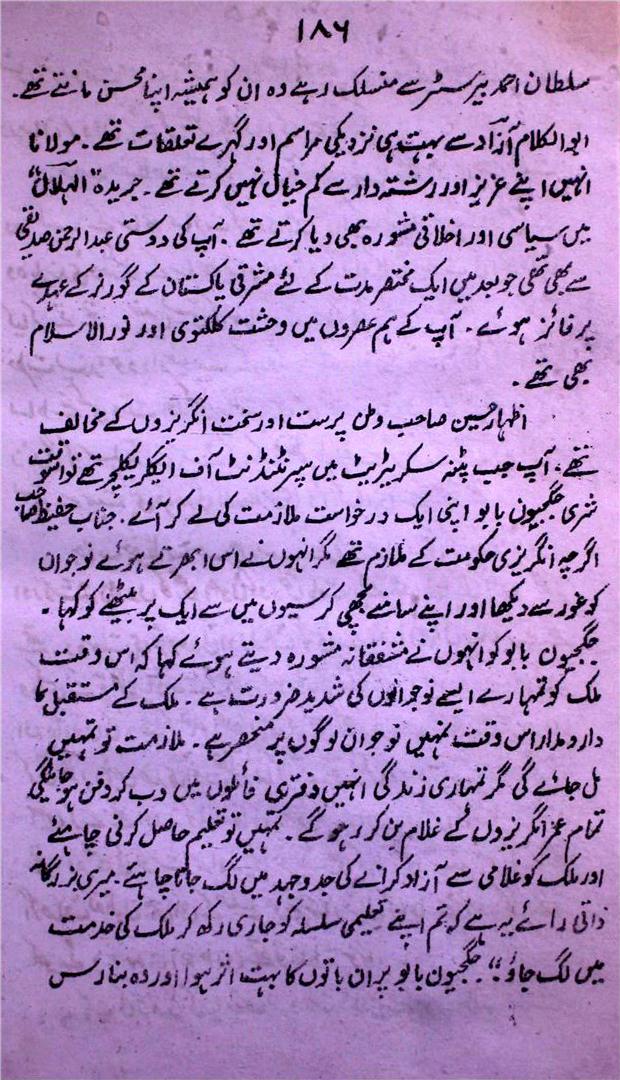 ۱۸۶
سلطان احمد بیرسٹر سے منسلک رہے وہ ان کو ہمیشہ اپنا محسن مانتے تھے۔
ابوالکلام آزاد سے بہت ہی نزدیکی مراسم اور گہرے تعلقات تھے۔ مولانا
انہیں اپنے عزیز اور رشتہ دار سے کم خیال نہیں کرتے تھے۔ جریدہ "الہلال"
میں سیاسی اور اخلاقی مشورہ بھی دیا کرتے تھے۔ آپ کی دوستی عبدالرحمن صدیقی
سے بھی تھی جو بعد میں ایک مختصر مدت کے لئے مشرقی پاکستان کے گورنر کے عہدے
پر فائز ہوئے۔ آپ کے ہم عصروں میں وحشت کلکتوی اور نورالاسلام
بھی تھے۔
اظہار حسین صاحب وطن پرست اور سخت انگریزوں کے مخالف
تھے، آپ جب پٹنہ سکریٹریٹ میں سپرنٹنڈنٹ آف الیکٹریکلچر تھے تو اسوقت
شری جگجیون بابو اپنی ایک درخواست ملازمت کی لے کر آئے۔ جناب حفیظ صاحب
اگرچہ انگریزی حکومت کے ملازم تھے مگر انہوں نے اس ابھرتے ہوئے نوجوان
کو غور سے دیکھا اور اپنے سامنے بچھی کرسیوں میں سے ایک پر بیٹھے کو کہا۔
جگجیون بابو کو انہوں نے مشفقانہ مشورہ دیتے ہوئے کہا کہ اس وقت
ملک کو تمہارے ایسے نوجوانوں کی شدید ضرورت ہے۔ ملک کے مستقبل کا
دارومدار اس وقت تمہیں نوجوان لوگوں پر منحصر ہے۔ ملازمت تو تمہیں
مل جائے گی مگر تمہاری زندگی انہیں دفتری فائلوں میں دب کر دفن ہو جائیگی
تمام عمر انگریزوں کے غلام بن کر رہو گے۔ تمہیں تو تعلیم حاصل کرنی چاہئے
اور ملک کو غلامی سے آزاد کرانے کی جدوجہد میں لگ جانا چاہئے۔ میری بزرگانہ
ذاتی رائے یہ ہے کہ تم اپنے تعلیمی سلسلہ کو جاری رکھ کر ملک کی خدمت
میں لگ جاؤ"۔ جگجیون بابو پر ان باتوں کا بہت اثر ہوا اور وہ بنارس